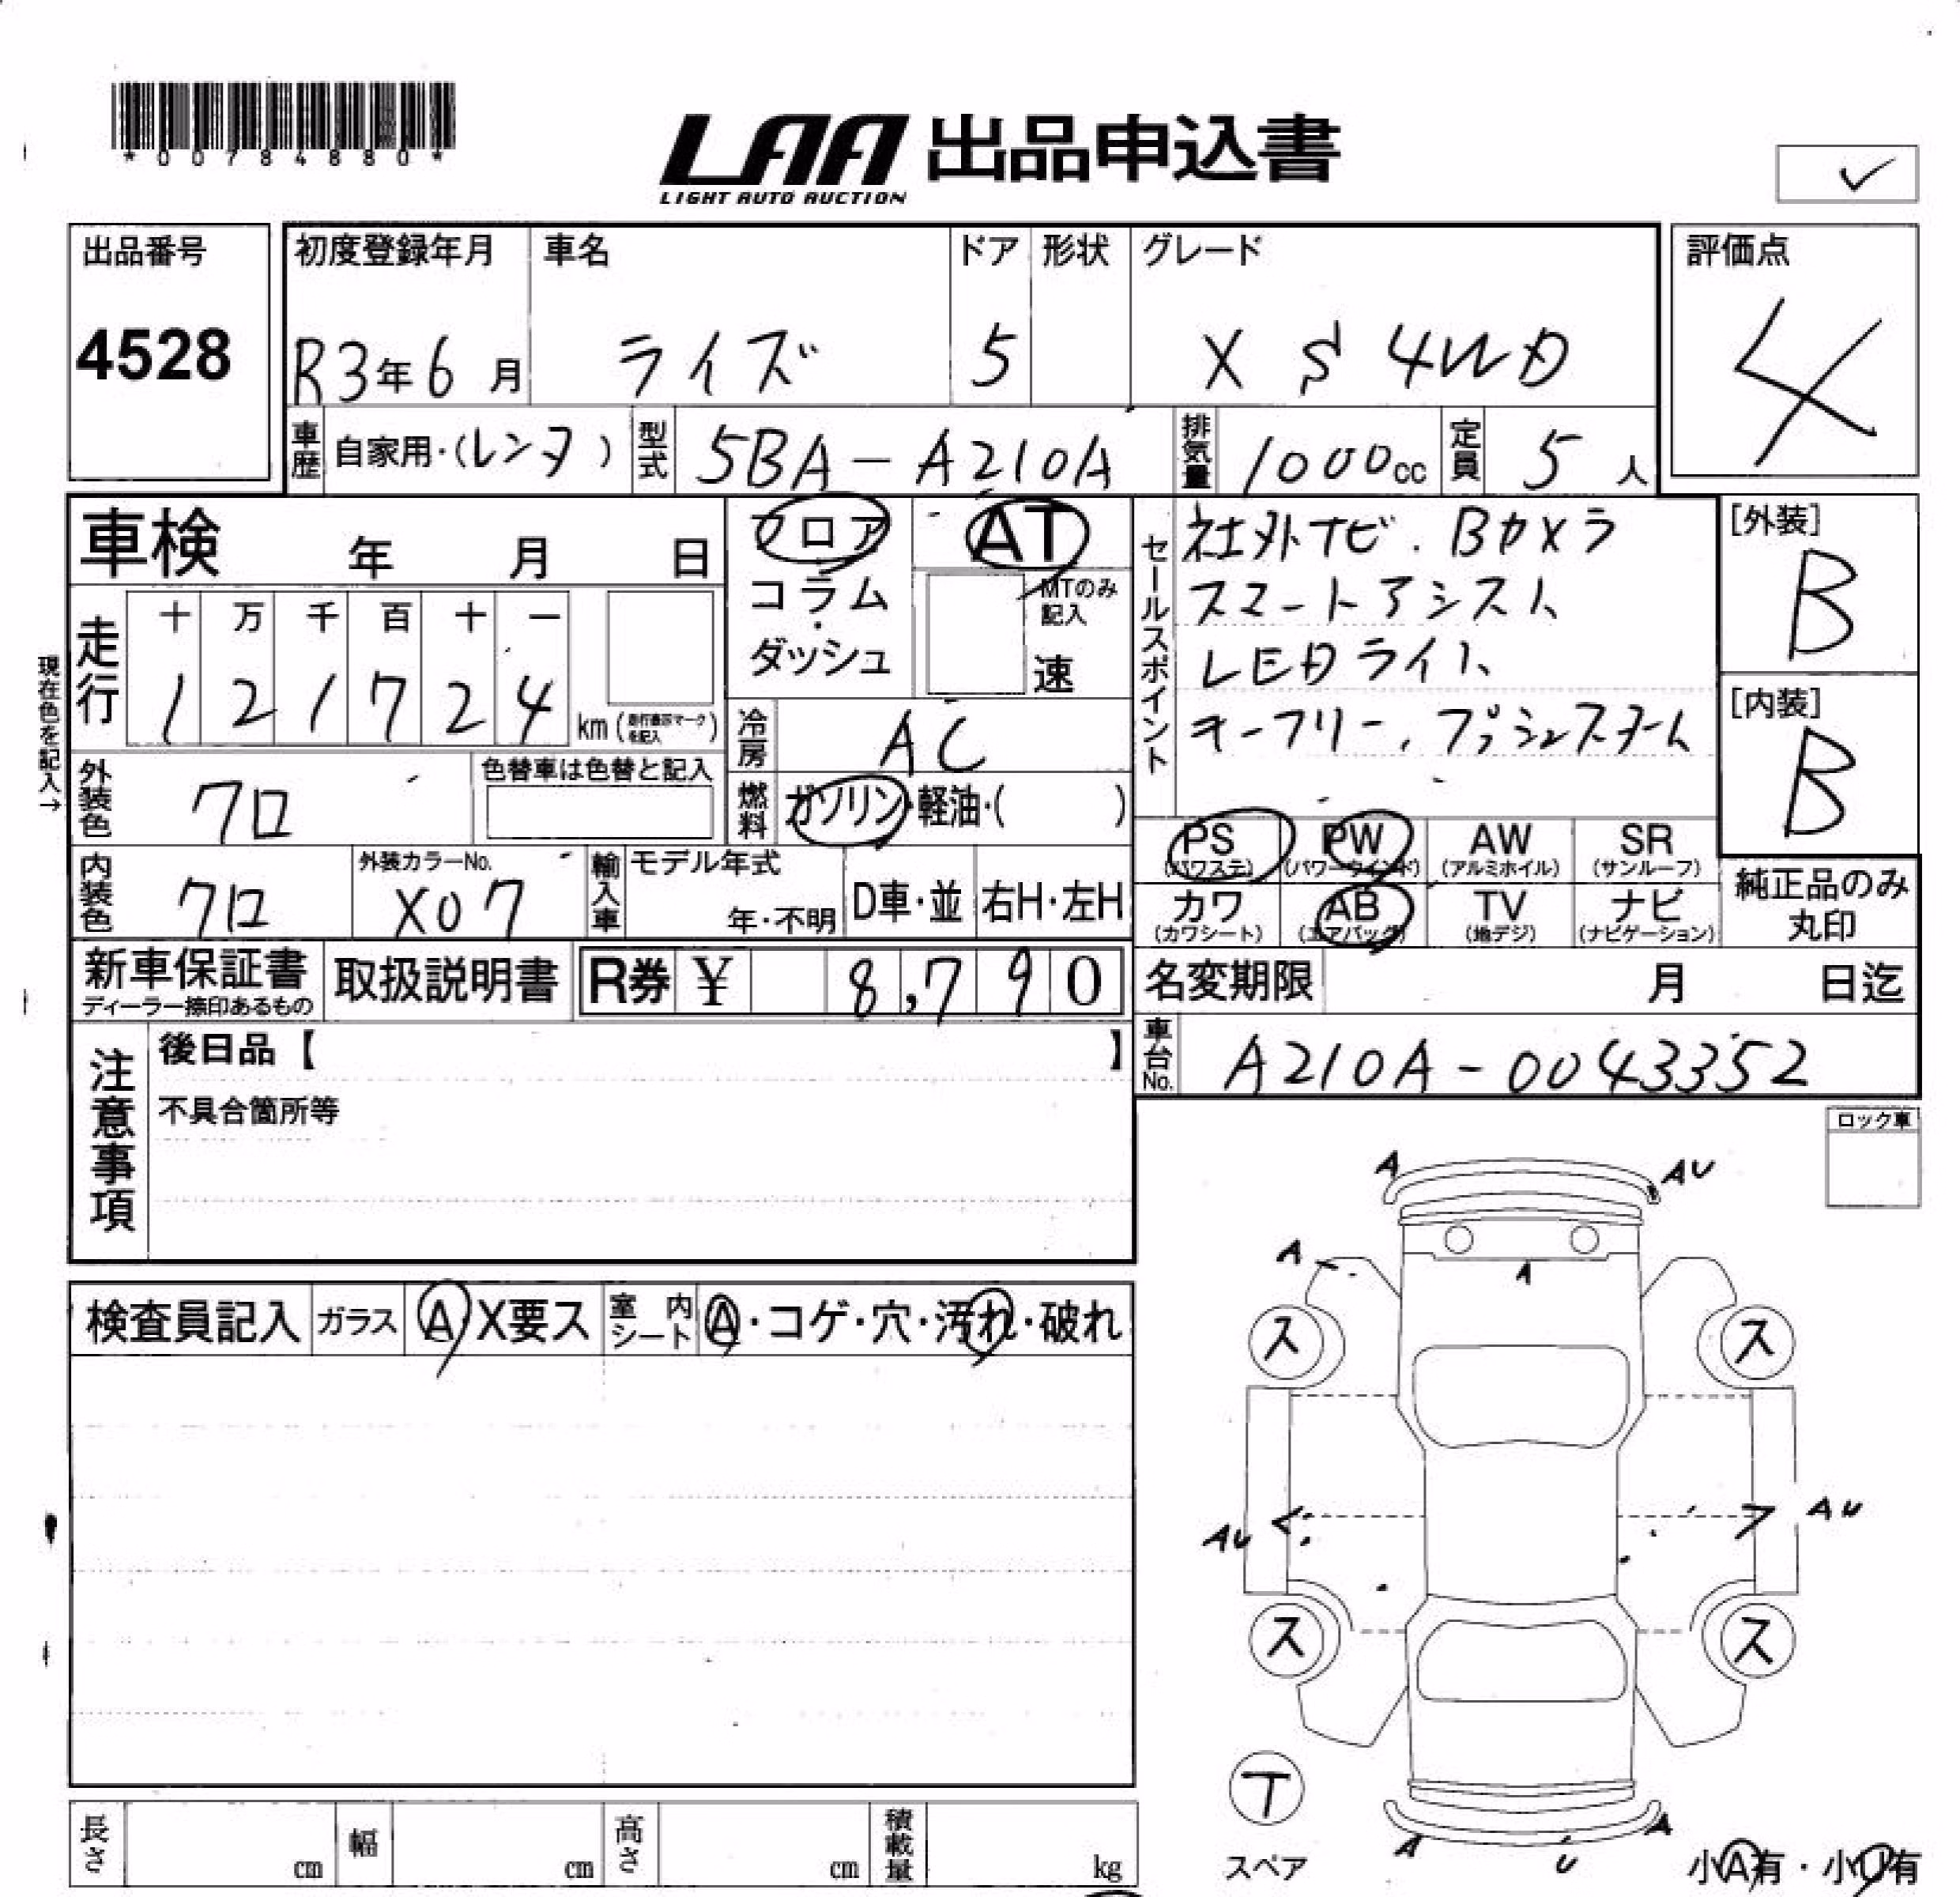 *00784880*
LAA 出品申込書
LIGHT AUTO AUCTION
出品番号
4528
初度登録年月
R3年6月
車名
ライズ
ドア
5
形状
グレード
X S 4WD
評価点
4
車歴
自家用・(レンタ)
型式
5BA-A210A
排気量
1000cc
定員
5人
車検 年 月 日
現在色を記入→
走行
十 万 千 百 十 一
1 2 1 7 2 4
km(走行表示マークを記入)
フロア
コラム
・
ダッシュ
AT
MTのみ
記入
速
冷房
AC
燃料
ガソリン・軽油・( )
外装色
クロ
色替車は色替と記入
内装色
クロ
外装カラーNo.
X07
輸入車
モデル年式
年・不明
D車・並
右H・左H
セールスポイント
社外ナビ.Bカメラ
スマートアシスト
LEDライト
キーフリー、プッシュスタート
[外装]
B
[内装]
B
PS
(パワステ)
PW
(パワーウインド)
AW
(アルミホイル)
SR
(サンルーフ)
カワ
(カワシート)
AB
(エアバッグ)
TV
(地デジ)
ナビ
(ナビゲーション)
純正品のみ
丸印
新車保証書
ディーラー捺印あるもの
取扱説明書
R券 ¥ 8,790
名変期限 月 日迄
車台No.
A210A-0043352
注意事項
後日品【 】
不具合箇所等
ロック車
検査員記入
ガラス
A・X要ス
室内シート
A・コゲ・穴・汚れ・破れ
A
AU
A
A
ス
ス
AU
AU
ス
ス
T
スペア
A
U
A
小A有・小U有
長さ
cm
幅
cm
高さ
cm
積載量
kg